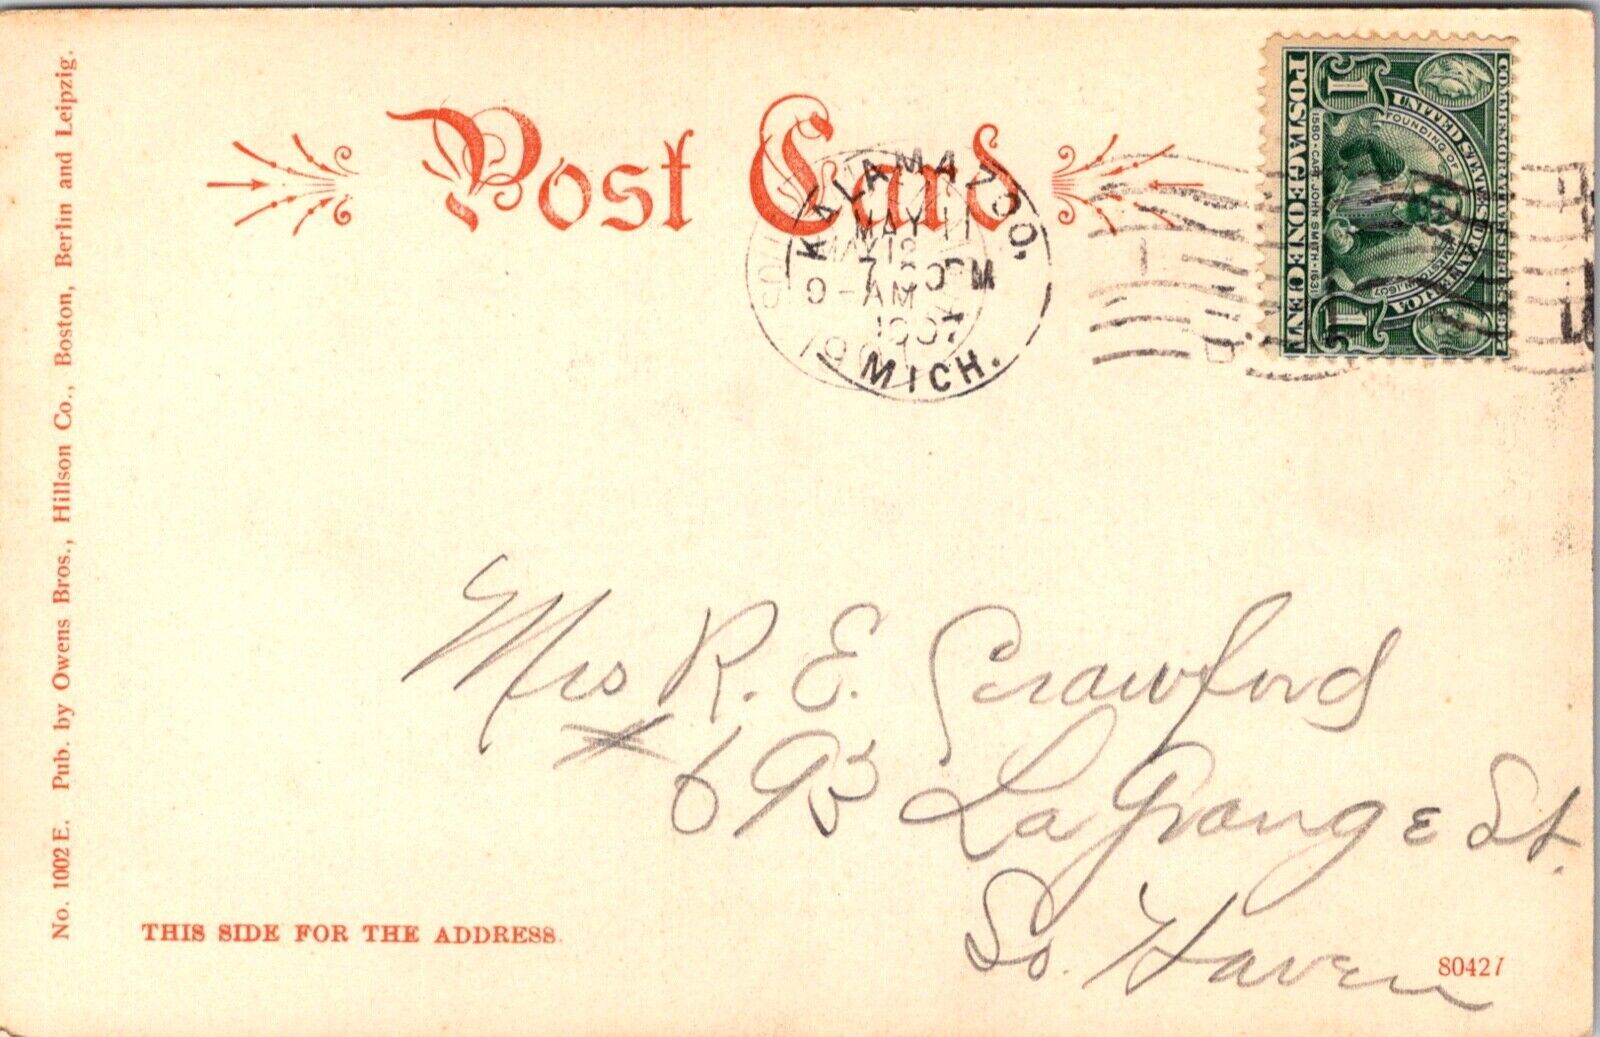 Post Card
KALAMAZOO,
MAY 11
7-30PM
1907
MICH.
MAY 12
9-AM
POSTAGE ONE CENT
1580·CAPT. JOHN SMITH·1631
FOUNDING OF JAMESTOWN 1607
UNITED STATES OF AMERICA
1
1
Mrs R. E. Crawford
# 695 La Grange St.
So. Haven
THIS SIDE FOR THE ADDRESS.
80427
No. 1002 E. Pub. by Owens Bros., Hillson Co., Boston, Berlin and Leipzig.